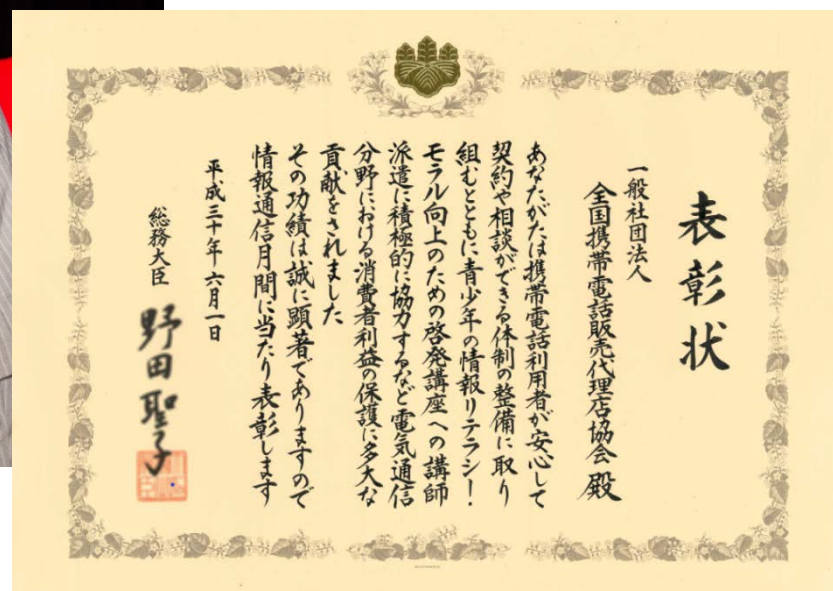 表彰状
一般社団法人
全国携帯電話販売代理店協会 殿
あなたがたは携帯電話利用者が安心して
契約や相談ができる体制の整備に取り
組むとともに青少年の情報リテラシー
モラル向上のための啓発講座への講師
派遣に積極的に協力するなど電気通信
分野における消費者利益の保護に多大な
貢献をされました
その功績は誠に顕著でありますので
情報通信月間に当たり表彰します
平成三十年六月一日
総務大臣 野田聖子